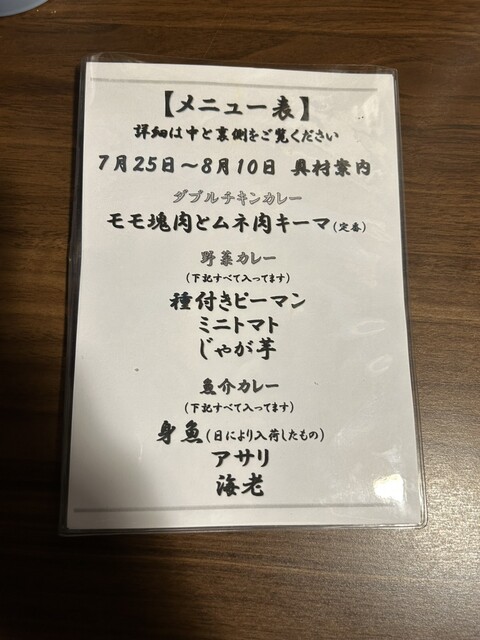 【メニュー表】
詳細は中と裏側をご覧ください
7月25日～8月10日 具材案内
ダブルチキンカレー
モモ塊肉とムネ肉キーマ(定番)
野菜カレー
(下記すべて入ってます)
種付きピーマン
ミニトマト
じゃが芋
魚介カレー
(下記すべて入ってます)
身魚(日により入荷したもの)
アサリ
海老